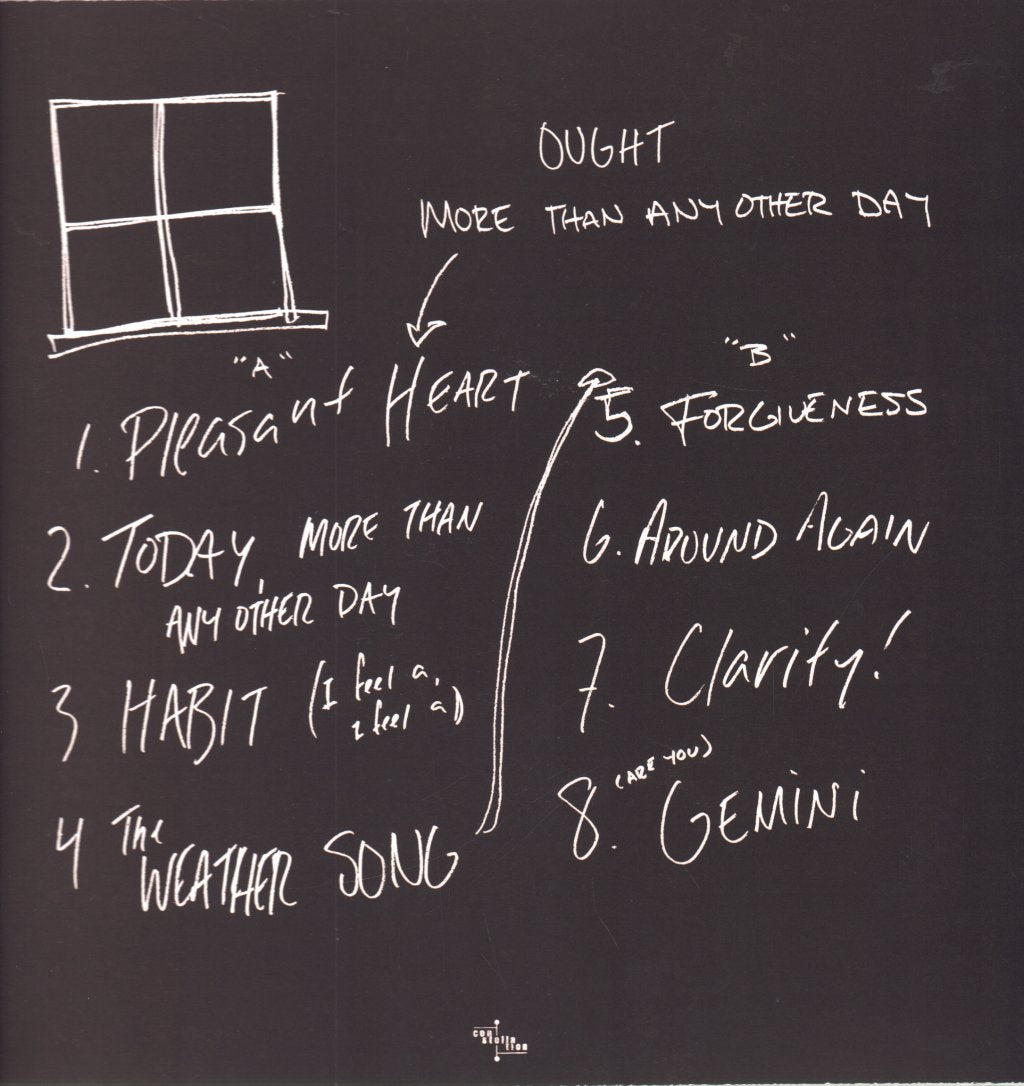 OUGHT
MORE THAN ANY OTHER DAY
"A"
1. Pleasant HEART
2. TODAY, MORE THAN
ANY OTHER DAY
3 HABIT (I feel a,
I feel a)
4 The
WEATHER SONG
"B"
5. FORGIVENESS
6. AROUND AGAIN
7. Clarity!
8. (ARE YOU)
GEMINI
con
stella
tion